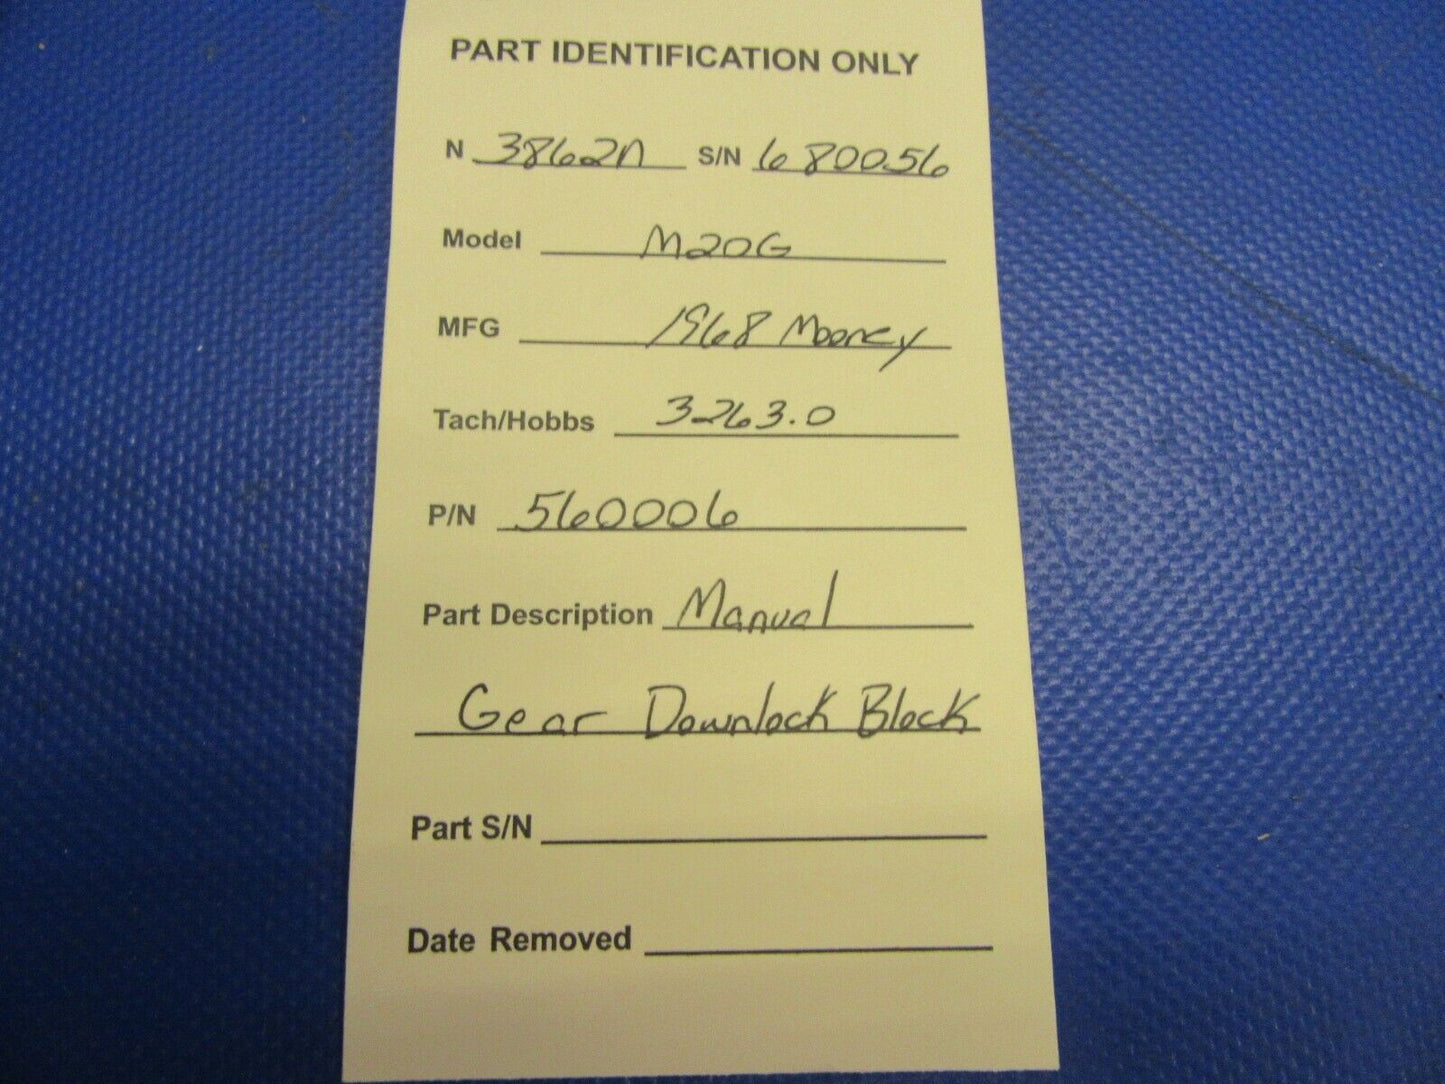 PART IDENTIFICATION ONLY
N 3862N S/N 680056
Model M20G
MFG 1968 Mooney
Tach/Hobbs 3263.0
P/N 560006
Part Description Manual
Gear Downlock Block
Part S/N
Date Removed